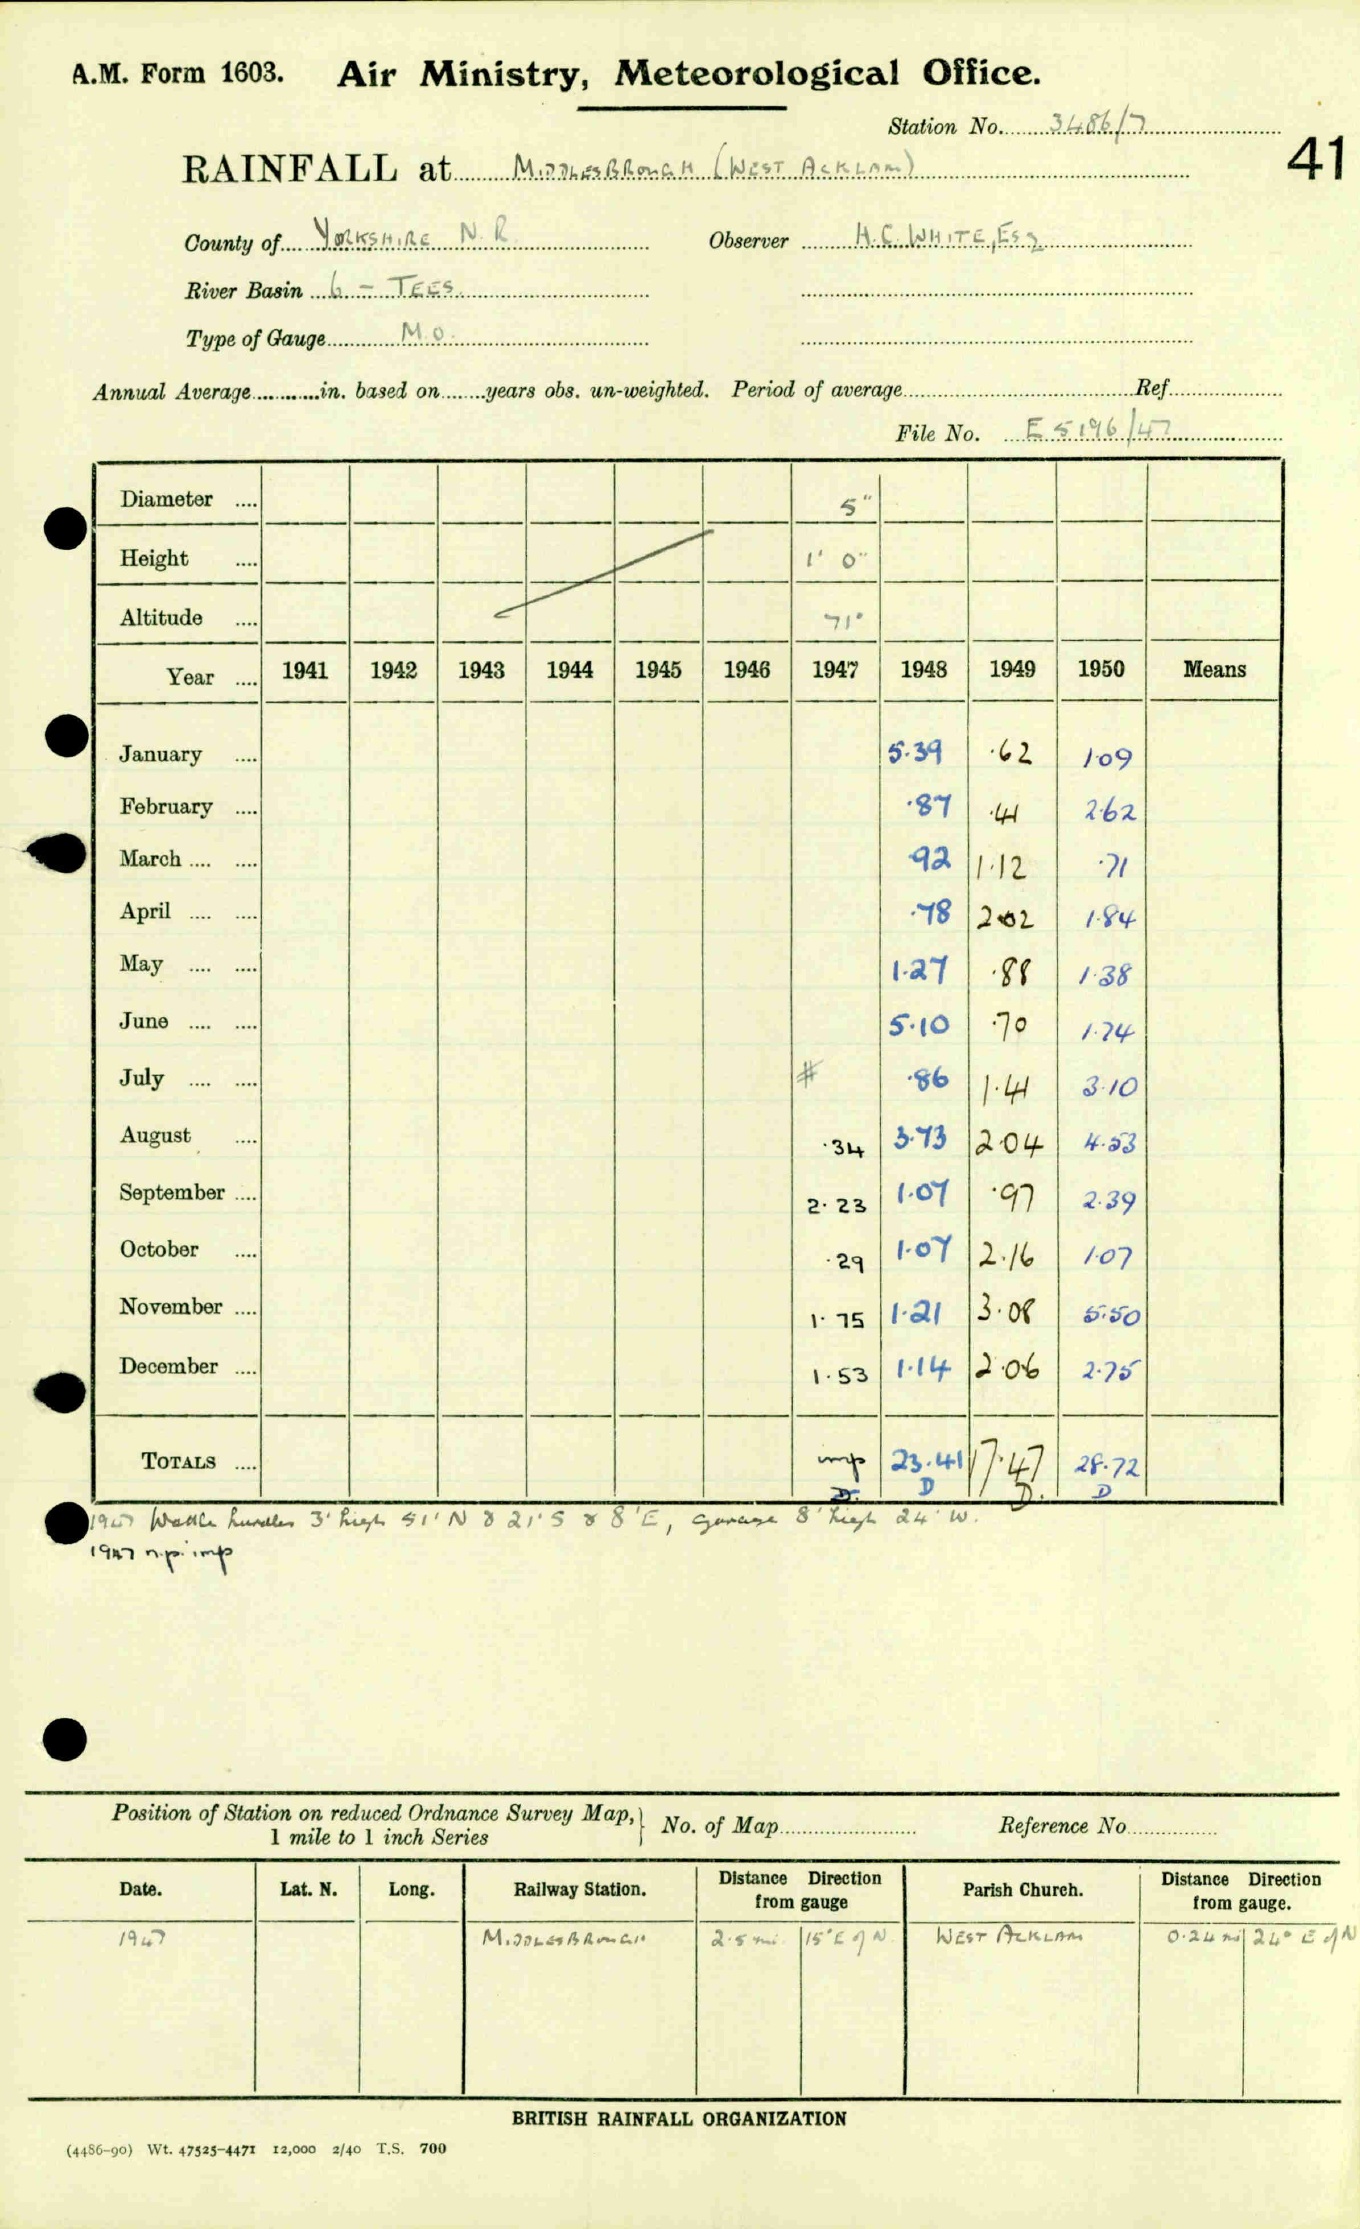 A.M. Form 1603. Air Ministry, Meteorological Office.
Station No. 3486/7
41
RAINFALL at MIDDLESBROUGH (WEST ACKLAM)
County of YORKSHIRE N.R. Observer H.C. WHITE, ESQ
River Basin 6 - TEES.
Type of Gauge M.O.
Annual Average in. based on years obs. un-weighted. Period of average Ref
File No. E 5196/47
Diameter 5"
Height 1' 0"
Altitude 71'
Year 1941 1942 1943 1944 1945 1946 1947 1948 1949 1950 Means
January 5.39 .62 1.09
February .87 .41 2.62
March .92 1.12 .71
April .78 2.02 1.84
May 1.27 .88 1.38
June 5.10 .70 1.74
July # .86 1.41 3.10
August .34 3.73 2.04 4.53
September 2.23 1.07 .97 2.39
October .29 1.07 2.16 1.07
November 1.75 1.21 3.08 5.50
December 1.53 1.14 2.06 2.75
TOTALS imp 23.41 17.47 28.72
D. D D. D
1947 Wattle hurdles 3' high 51' N & 21' S & 8' E, garage 8' high 24' W.
1947 n.p. imp
Position of Station on reduced Ordnance Survey Map, } No. of Map Reference No
1 mile to 1 inch Series
Date. Lat. N. Long. Railway Station. Distance Direction from gauge Parish Church. Distance Direction from gauge.
1947 MIDDLESBROUGH 2.5 mi. 15° E of N. WEST ACKLAM 0.24 mi 24° E of N
BRITISH RAINFALL ORGANIZATION
(4486-90) Wt. 47525-4471 12,000 2/40 T.S. 700